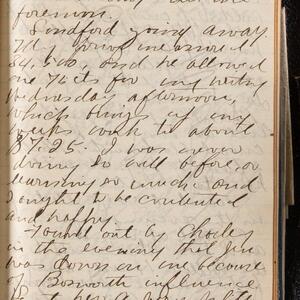 foreman.
Sandford going away
My
$4,500, and he allowed
me 75 cts for my writing
Wednesday afternoon,
which brings up my
weeks work to about
$7.25. I was never
doing so well before, or
learning so much and
I ought to be contented
and happy.
Found out by Charley
in the evening that Jen
was down on me because
of Bosworth influence